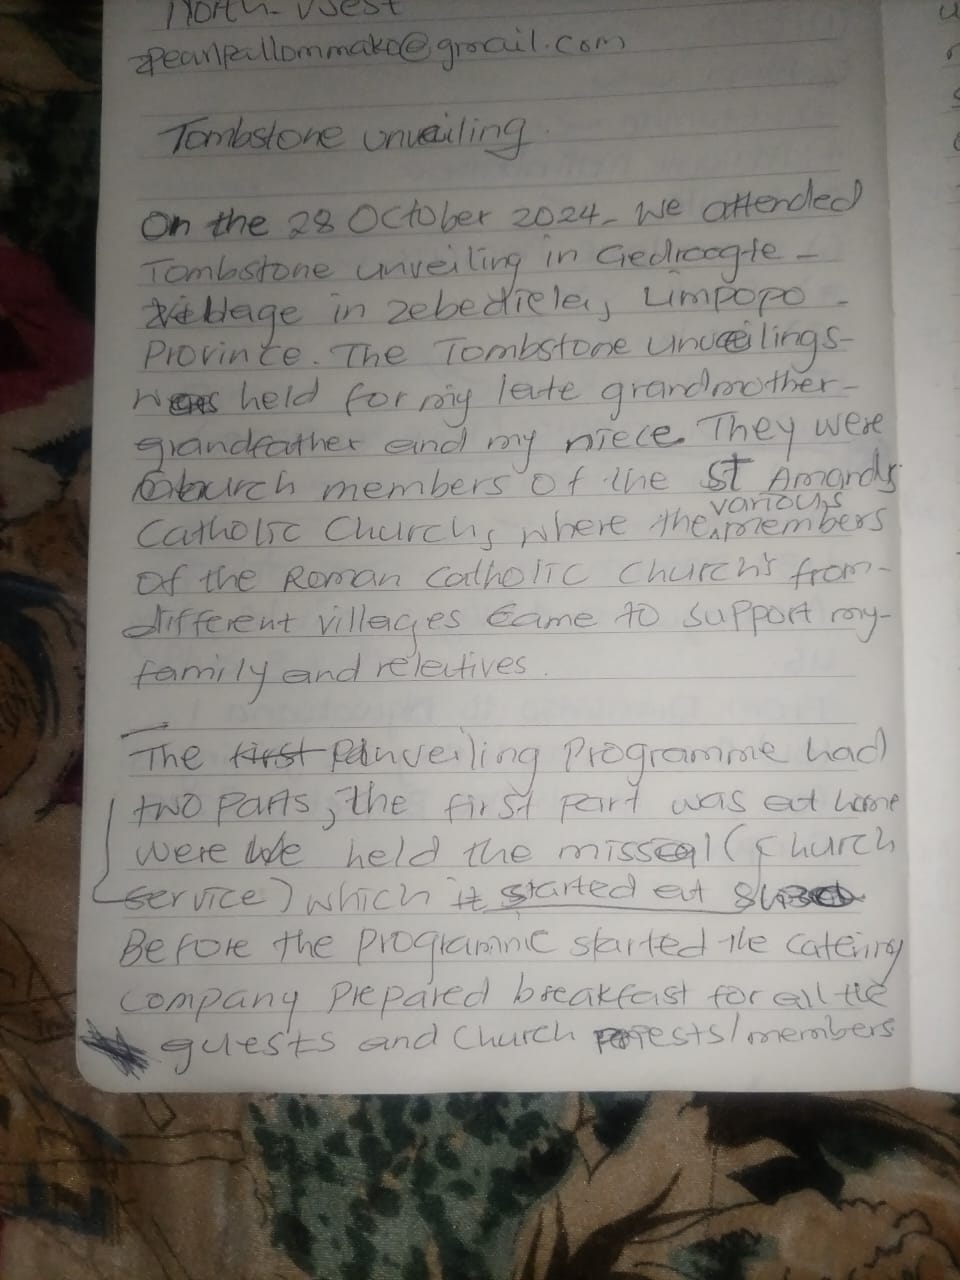 North-West
zpearlpallommako@gmail.com
Tombstone unveiling.
On the 28 October 2024- We attended
Tombstone unveiling in Gedroogte -
village in zebediele, Limpopo -
Province. The Tombstone unveilings-
was held for my late grandmother-
grandfather and my niece. They were
Church members of the St Amards
various
Catholic Church, where the members
of the Roman Catholic Church's from-
different villages came to support my-
family and reletives.
The first unveiling Programme had
two parts, the first part was at home
were We held the missal (Church
service) which it started at
Before the programme started the catering
company prepared breakfast for all the
guests and Church Priests/members